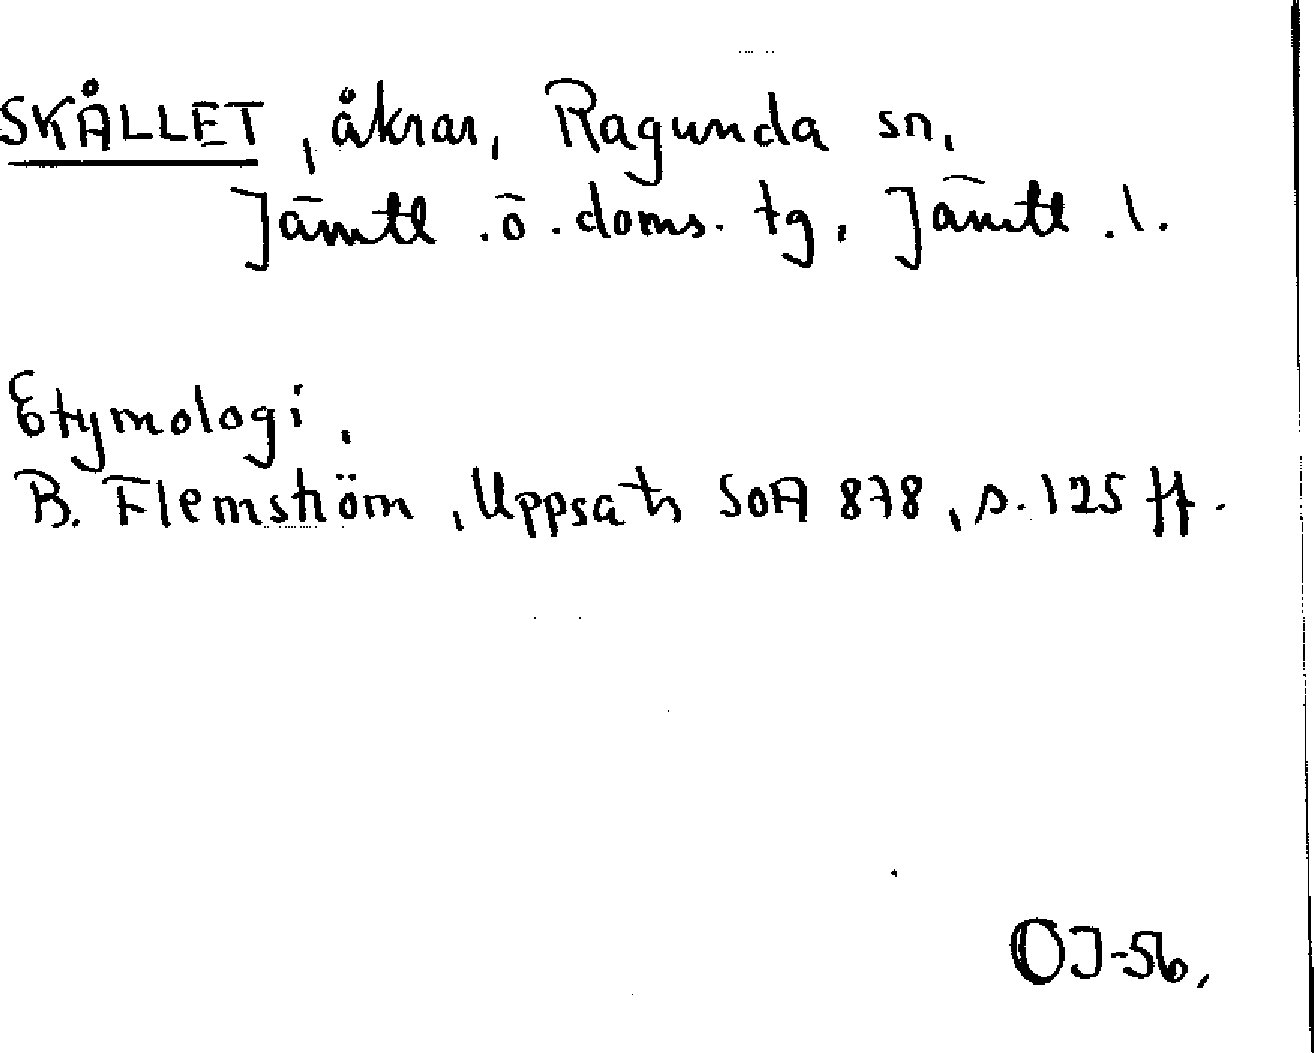 SKÅLLET, åkrar, Ragunda sn,
Jämtl. ö. doms. tg, Jämtl. l.
Etymologi.
B. Flemström, Uppsats SOA 878, s. 125 ff.
OJ-56.